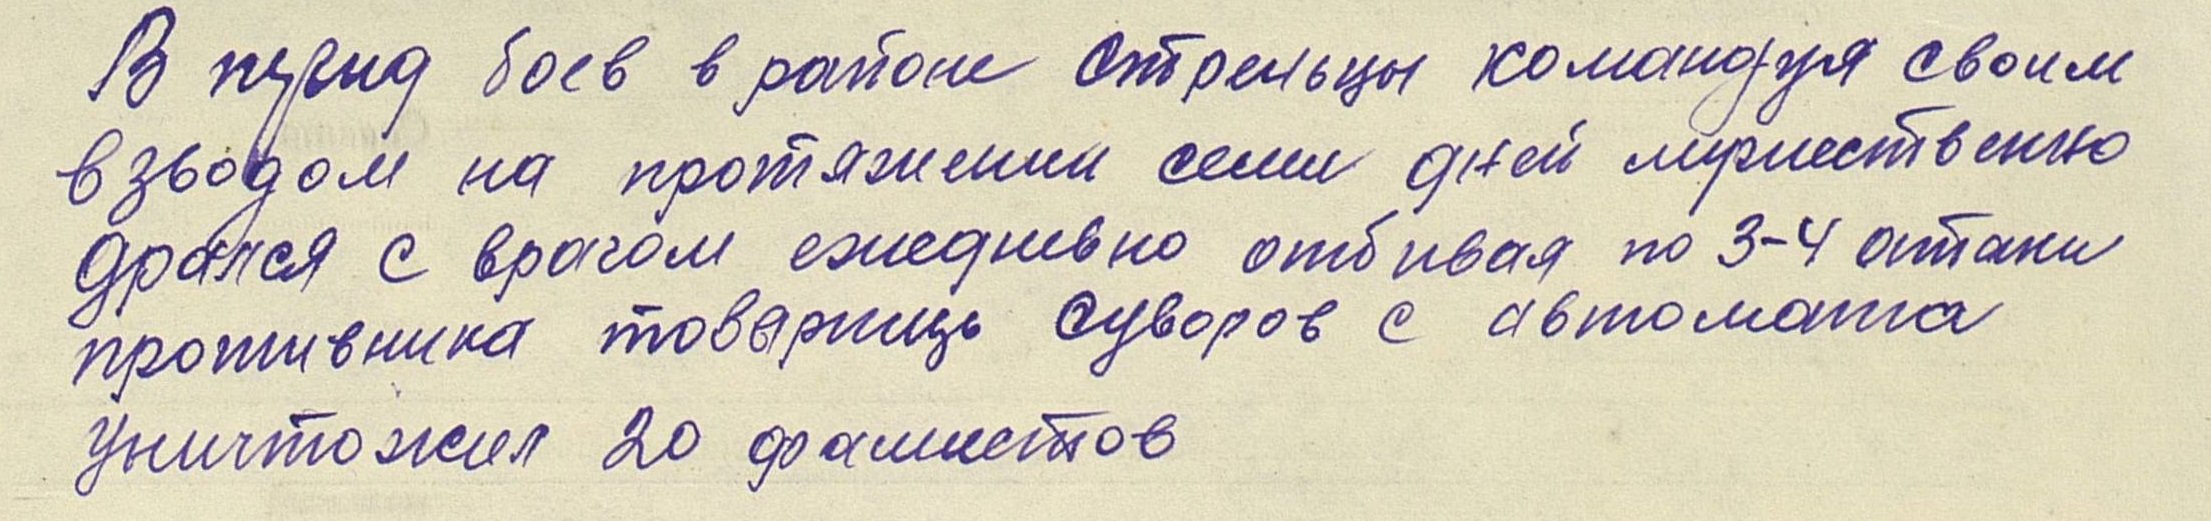 В период боев в районе Стрельцы командуя своим
взводом на протяжении семи дней мужественно
дрался с врагом ежедневно отбивая по 3-4 атаки
противника товарищь Суворов с автомата
уничтожил 20 фашистов